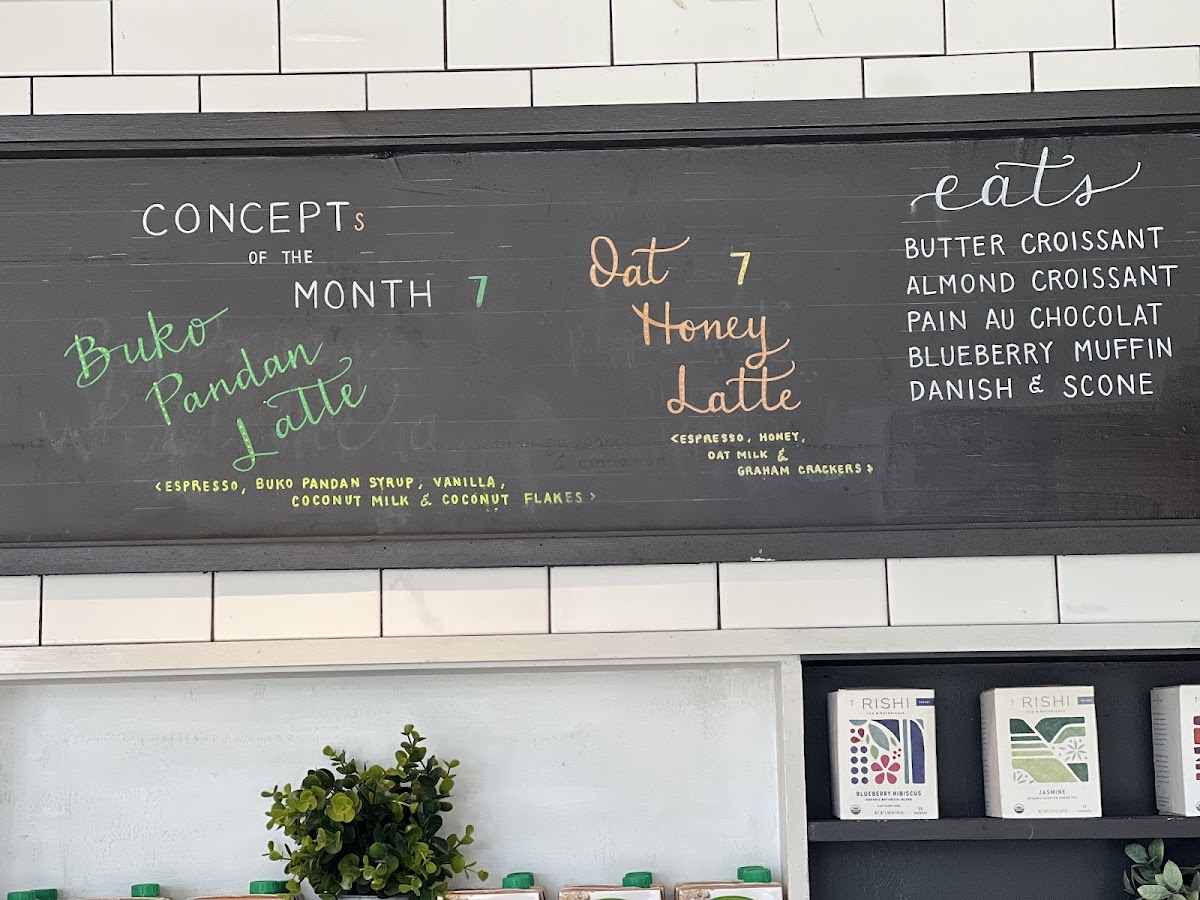 CONCEPTs
OF THE
MONTH 7
Buko
Pandan
Latte
<ESPRESSO, BUKO PANDAN SYRUP, VANILLA,
COCONUT MILK & COCONUT FLAKES>
Oat 7
Honey
Latte
<ESPRESSO, HONEY,
OAT MILK &
GRAHAM CRACKERS>
eats
BUTTER CROISSANT
ALMOND CROISSANT
PAIN AU CHOCOLAT
BLUEBERRY MUFFIN
DANISH & SCONE
& cinnamon
RISHI
TEA & BOTANICALS
BLUEBERRY HIBISCUS
ORGANIC BOTANICAL BLEND
RISHI
JASMINE